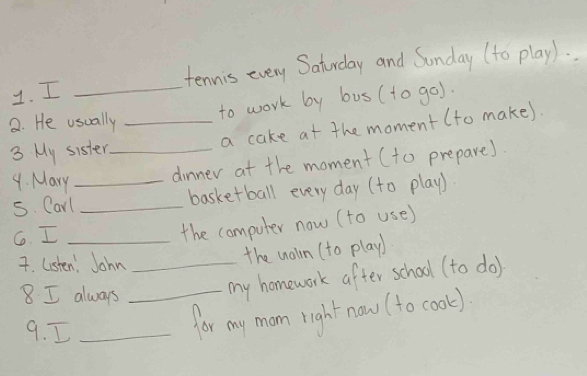 1. I ________ tennis every Saturday and Sunday (to play)..
2. He usually ________ to work by bus (to go).
3 My sister ________ a cake at the moment (to make).
4. Mary ________ dinner at the moment (to prepare).
5. Carl ________ basketball every day (to play)
6. I ________ the computer now (to use)
7. Listen! John ________ the violin (to play).
8 I always ________ my homework after school (to do).
9. I ________ for my mom right now (to cook).